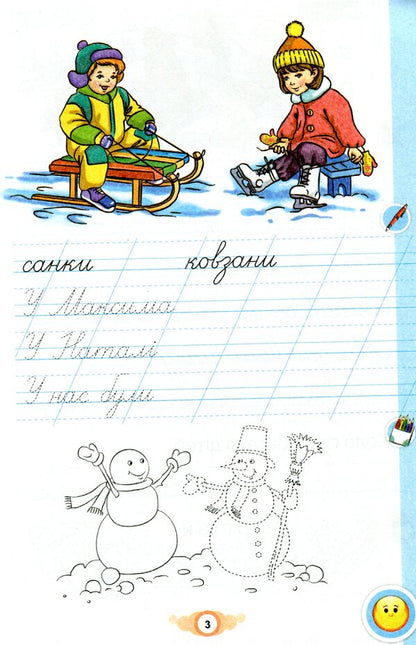 санки ковзани
У Максима
У Наталі
У нас були
3